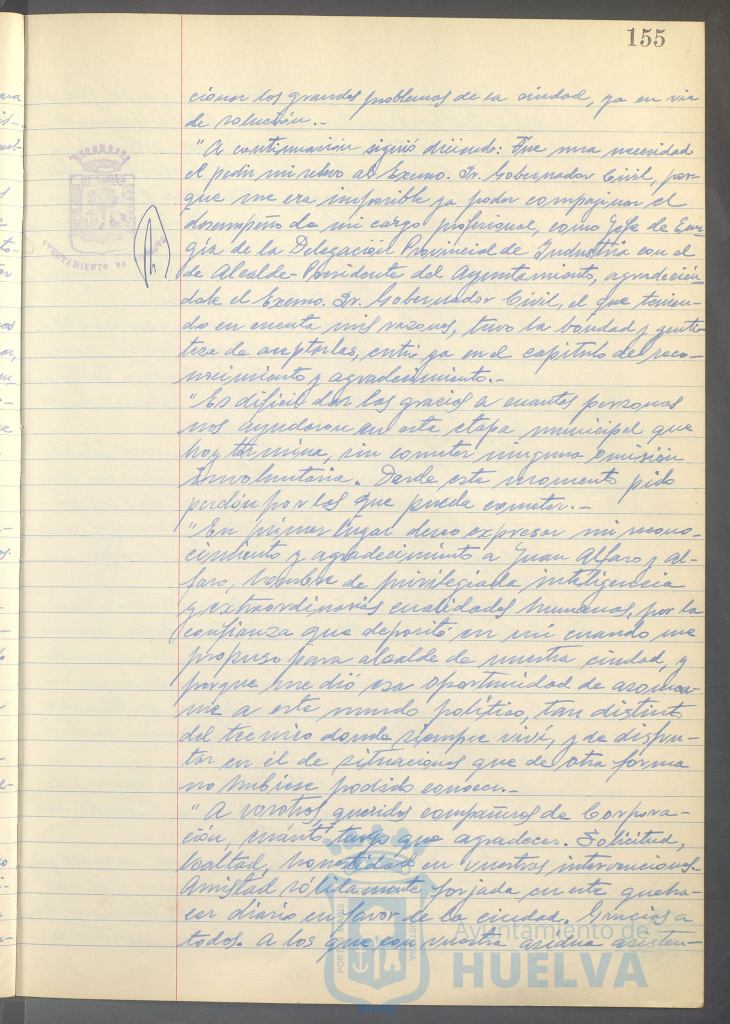 155
cionar los grandes problemas de la ciudad, ya en via
de solución.-
"A continuación siguió diciendo: Fue una necesidad
el pedir mi relevo al Excmo. Sr. Gobernador Civil, por-
que me era imposible ya poder compaginar el
desempeño de mi cargo profesional, como Jefe de Ener-
gía de la Delegación Provincial de Industria con el
de Alcalde-Presidente del Ayuntamiento, agradecién-
dole el Excmo. Sr. Gobernador Civil, el que tenien-
do en cuenta mis razones, tuvo la bondad y genti-
leza de aceptarlas, entré ya en el capitulo del reco-
nocimiento y agradecimiento.-
"Es dificil dar las gracias a cuantas personas
nos ayudaron en esta etapa municipal que
hoy termina, sin cometer ninguna omisión
involuntaria. Desde este momento pido
perdón por las que pueda cometer.-
"En primer lugar deseo expresar mi recono-
cimiento y agradecimiento a Juan Alfaro y Al-
faro, hombre de privilegiada inteligencia
y extraordinarias cualidades humanas, por la
confianza que depositó en mi cuando me
propuso para alcalde de nuestra ciudad, y
porque me dió esa oportunidad de asomar-
me a este mundo político, tan distinto
del tecnico donde siempre viví, y de disfru-
tar en él de situaciones que de otra forma
no hubiese podido conocer.-
"A vosotros, queridos compañeros de Corpora-
ción, cuánto tengo que agradecer. Solicitud,
lealtad, honestidad en vuestras intervenciones.
Amistad sólidamente forjada en este queha-
cer diario en favor de la ciudad. Gracias a
todos. A los que con vuestra asidua asisten-
AYUNTAMIENTO DE
Ayuntamiento de
HUELVA